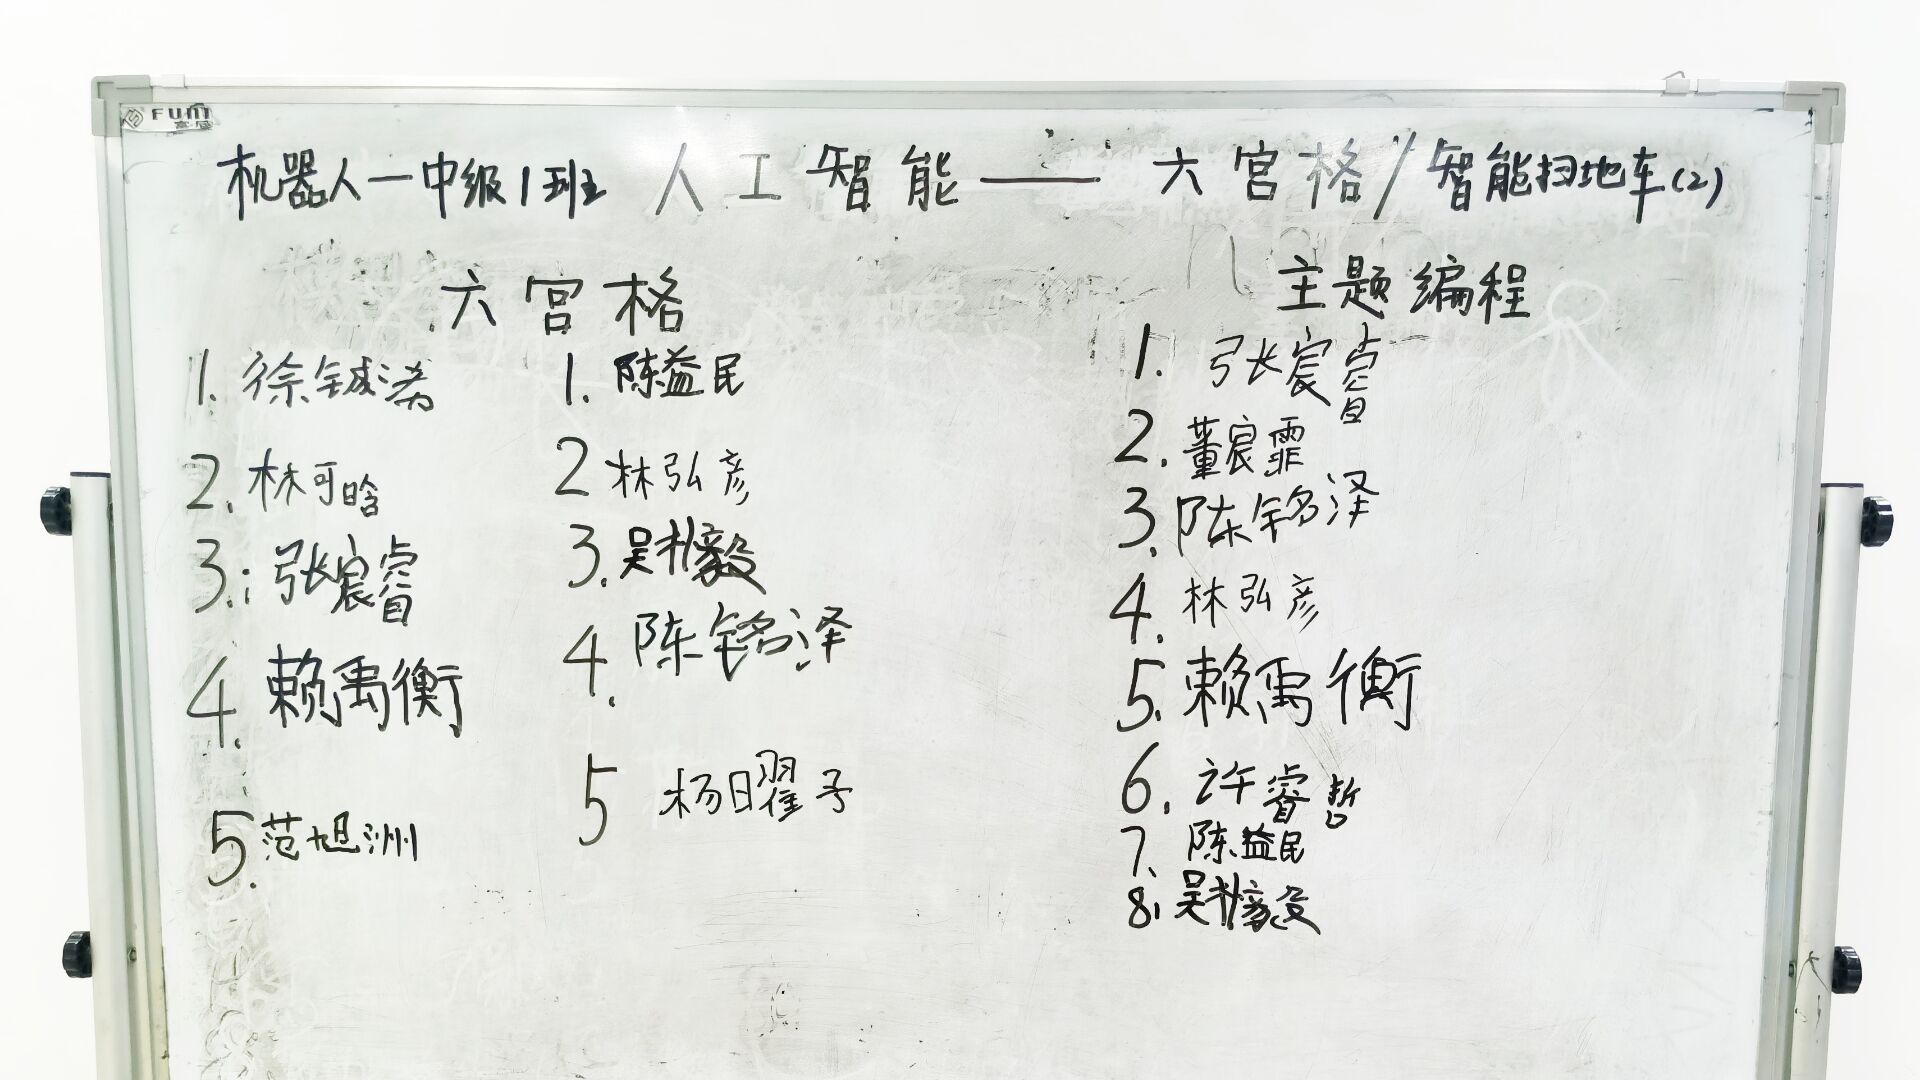 FUNI
机器人一中级1班 人工智能——六宫格/智能扫地车(2)
六宫格
1. 徐铖浠
2. 林可晗
3. 张宸睿
4. 赖禹衡
5. 范旭洲
1. 陈益民
2 林弘彦
3. 吴楙毅
4. 陈铭泽
5 杨日曜子
主题编程
1. 张宸睿
2. 董宸霏
3. 陈铭泽
4. 林弘彦
5. 赖禹衡
6. 许睿哲
7. 陈益民
8. 吴